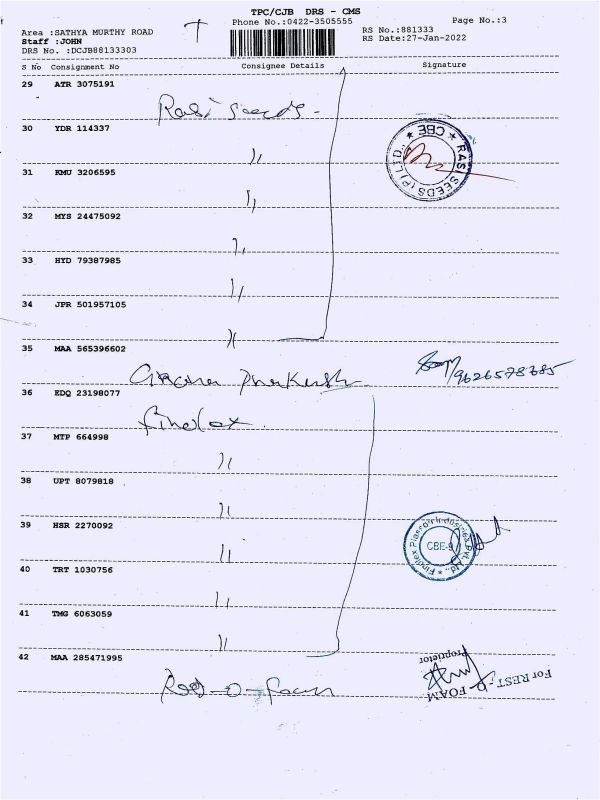 TPC/CJB DRS - CMS
Phone No.:0422-3505555
Page No.:3
Area :SATHYA MURTHY ROAD
Staff :JOHN
DRS No. :DCJB88133303
RS No.:881333
RS Date:27-Jan-2022
S No Consignment No Consignee Details Signature
29 ATR 3075191
Rasi seeds.
30 YDR 114337
"
31 KMU 3206595
"
32 MYS 24475092
"
33 HYD 79387985
"
34 JPR 501957105
"
RASI SEEDS (P) LTD * CBE *
35 MAA 565396602
9626578685
36 EDQ 23198077
finolex.
37 MTP 664998
"
38 UPT 8079818
"
39 HSR 2270092
"
40 TRT 1030756
"
41 TMG 6063059
"
Finolex Plasson Industries Pvt. Ltd., *
CBE-9
42 MAA 285471995
Rest-O-Foam
For REST - O - FOAM
Proprietor